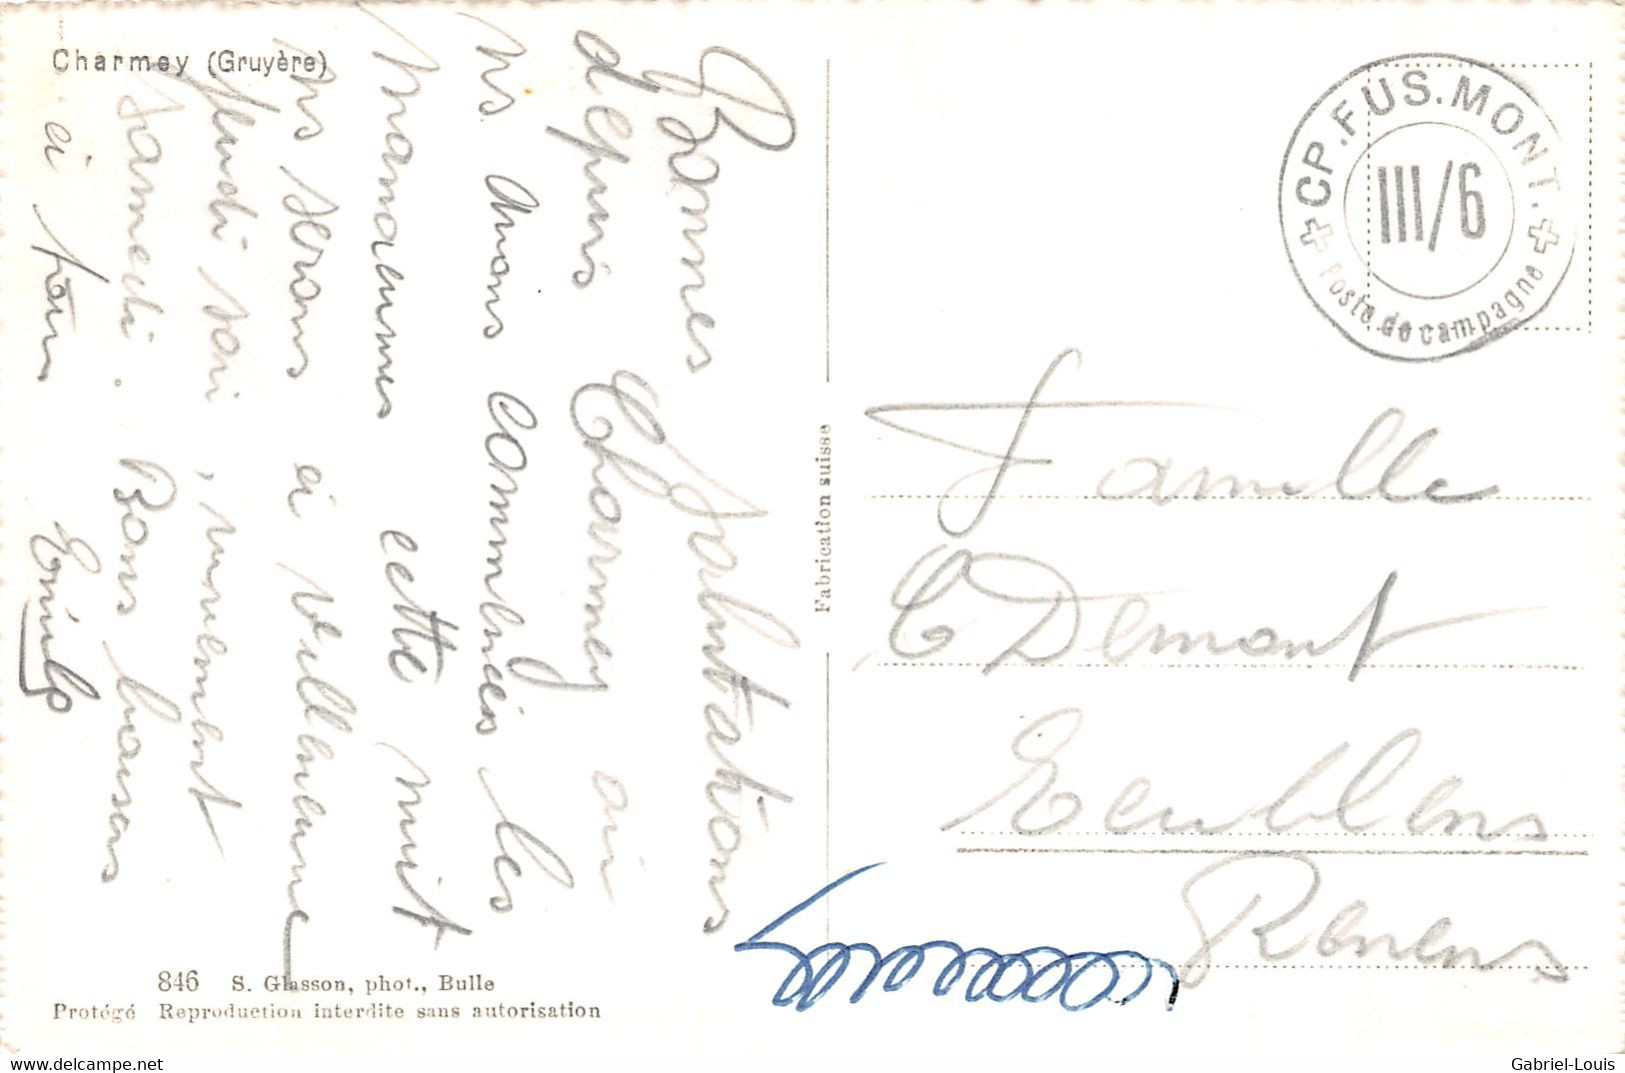 Charmey (Gruyère)
Bonnes Salutations
depuis Charmey où
ns avons commencés les
manœuvres cette nuit
ns serons à Villeneuve
jeudi soir,
samedi. Bons baisers
à tous
CP. FUS. MONT.
III/6
Poste de campagne
Fabrication suisse
Famille
C Demont
Ecublens
Renens
846 S. Glasson, phot., Bulle
Protégé Reproduction interdite sans autorisation
www.delcampe.net
Gabriel-Louis